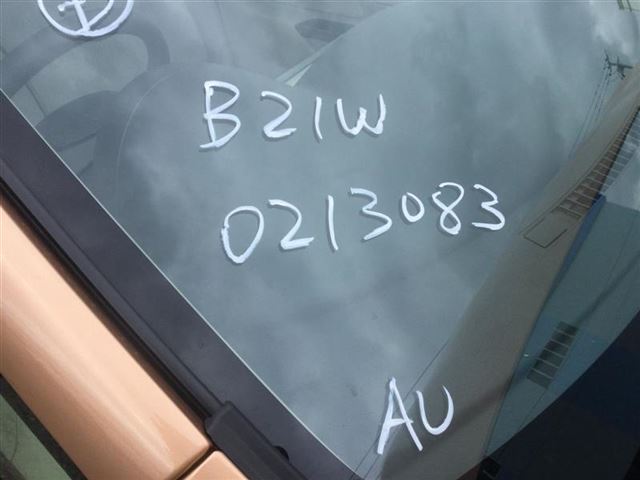 B21W
0213083
AU